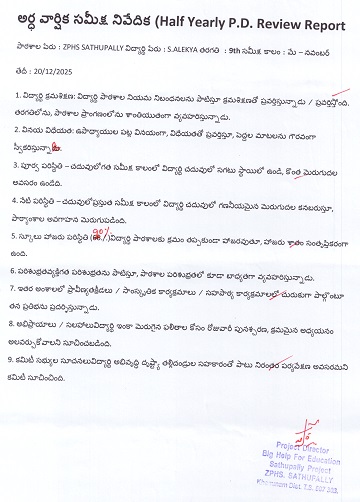 అర్ధ వార్షిక సమీక్ష నివేదిక (Half Yearly P.D. Review Report
పాఠశాల పేరు : ZPHS SATHUPALLY విద్యార్థి పేరు : S.ALEKYA తరగతి : 9th సమీక్ష కాలం : మె – నవంబర్
తేదీ : 20/12/2025
1. విద్యార్థి క్రమశిక్షణ: విద్యార్థి పాఠశాల నియమ నిబంధనలను పాటిస్తూ క్రమశిక్షణతో ప్రవర్తిస్తున్నాడు / ప్రవర్తిస్తోంది.
తరగతిలోను, పాఠశాల ప్రాంగణంలోను శాంతియుతంగా వ్యవహరిస్తున్నాడు.
2. వినయ విధేయత: ఉపాధ్యాయుల పట్ల వినయంగా, విధేయతతో ప్రవర్తిస్తూ, పెద్దల మాటలను గౌరవంగా
స్వీకరిస్తున్నా
3. పూర్వ పరిస్థితి – చదువులోగత సమీక్ష కాలంలో విద్యార్థి చదువులో సగటు స్థాయిలో ఉండి, కొంత మెరుగుదల
అవసరం ఉండేది.
4. నేటి పరిస్థితి – చదువులోప్రస్తుత సమీక్ష కాలంలో విద్యార్థి చదువులో గణనీయమైన మెరుగుదల కనబరుస్తూ,
పాఠ్యాంశాల అవగాహన మెరుగుపడింది.
5. స్కూలు హాజరు పరిస్థితి ( 90% )విద్యార్థి పాఠశాలకు క్రమం తప్పకుండా హాజరవుతూ, హాజరు శాతం సంతృప్తికరంగా
ఉంది.
6. పరిశుభ్రతవ్యక్తిగత పరిశుభ్రతను పాటిస్తూ, పాఠశాల పరిశుభ్రతలో కూడా బాధ్యతగా వ్యవహరిస్తున్నాడు.
7. ఇతర అంశాలలో ప్రావీణ్యతక్రీడలు / సాంస్కృతిక కార్యక్రమాలు / సహపాఠ్య కార్యక్రమాలలో చురుకుగా పాల్గొంటూ
తన ప్రతిభను ప్రదర్శిస్తున్నాడు.
8. అభిప్రాయాలు / సలహాలువిద్యార్థి ఇంకా మెరుగైన ఫలితాల కోసం రోజువారీ పునశ్చరణ, క్రమమైన అధ్యయనం
అలవర్చుకోవాలని సూచించబడింది.
9. కమిటీ సభ్యుల సూచనలువిద్యార్థి అభివృద్ధి దృష్ట్యా తల్లిదండ్రుల సహకారంతో పాటు నిరంతర పర్యవేక్షణ అవసరమని
కమిటీ సూచించింది.
Project Director
Big Help For Education
Sathupally Project
ZPHS, SATHUPALLY
Khammam Dist. T.S. 507 303.